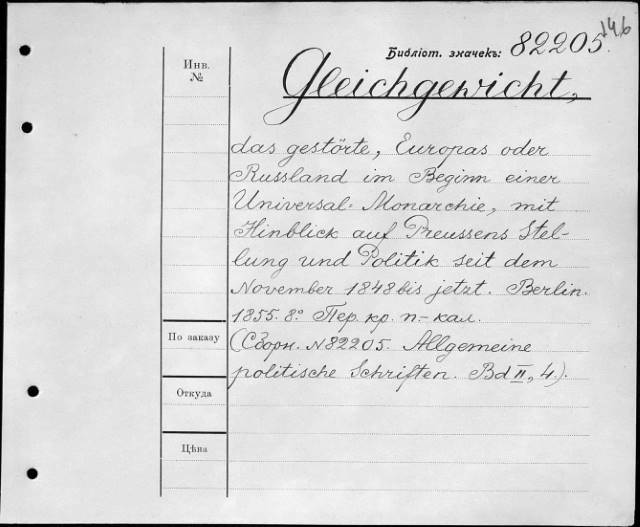 146
Библіот. значекъ: 82205.
Инв.
№
Gleichgewicht,
das gestörte, Europas oder
Russland im Beginn einer
Universal-Monarchie, mit
Hinblick auf Preussens Stel-
lung und Politik seit dem
November 1848 bis jetzt. Berlin.
1855. 8° Пер. кр. п-кал.
(Сборн. №82205. Allgemeine
politische Schriften. Bd II, 4.).
По заказу
Откуда
Цѣна